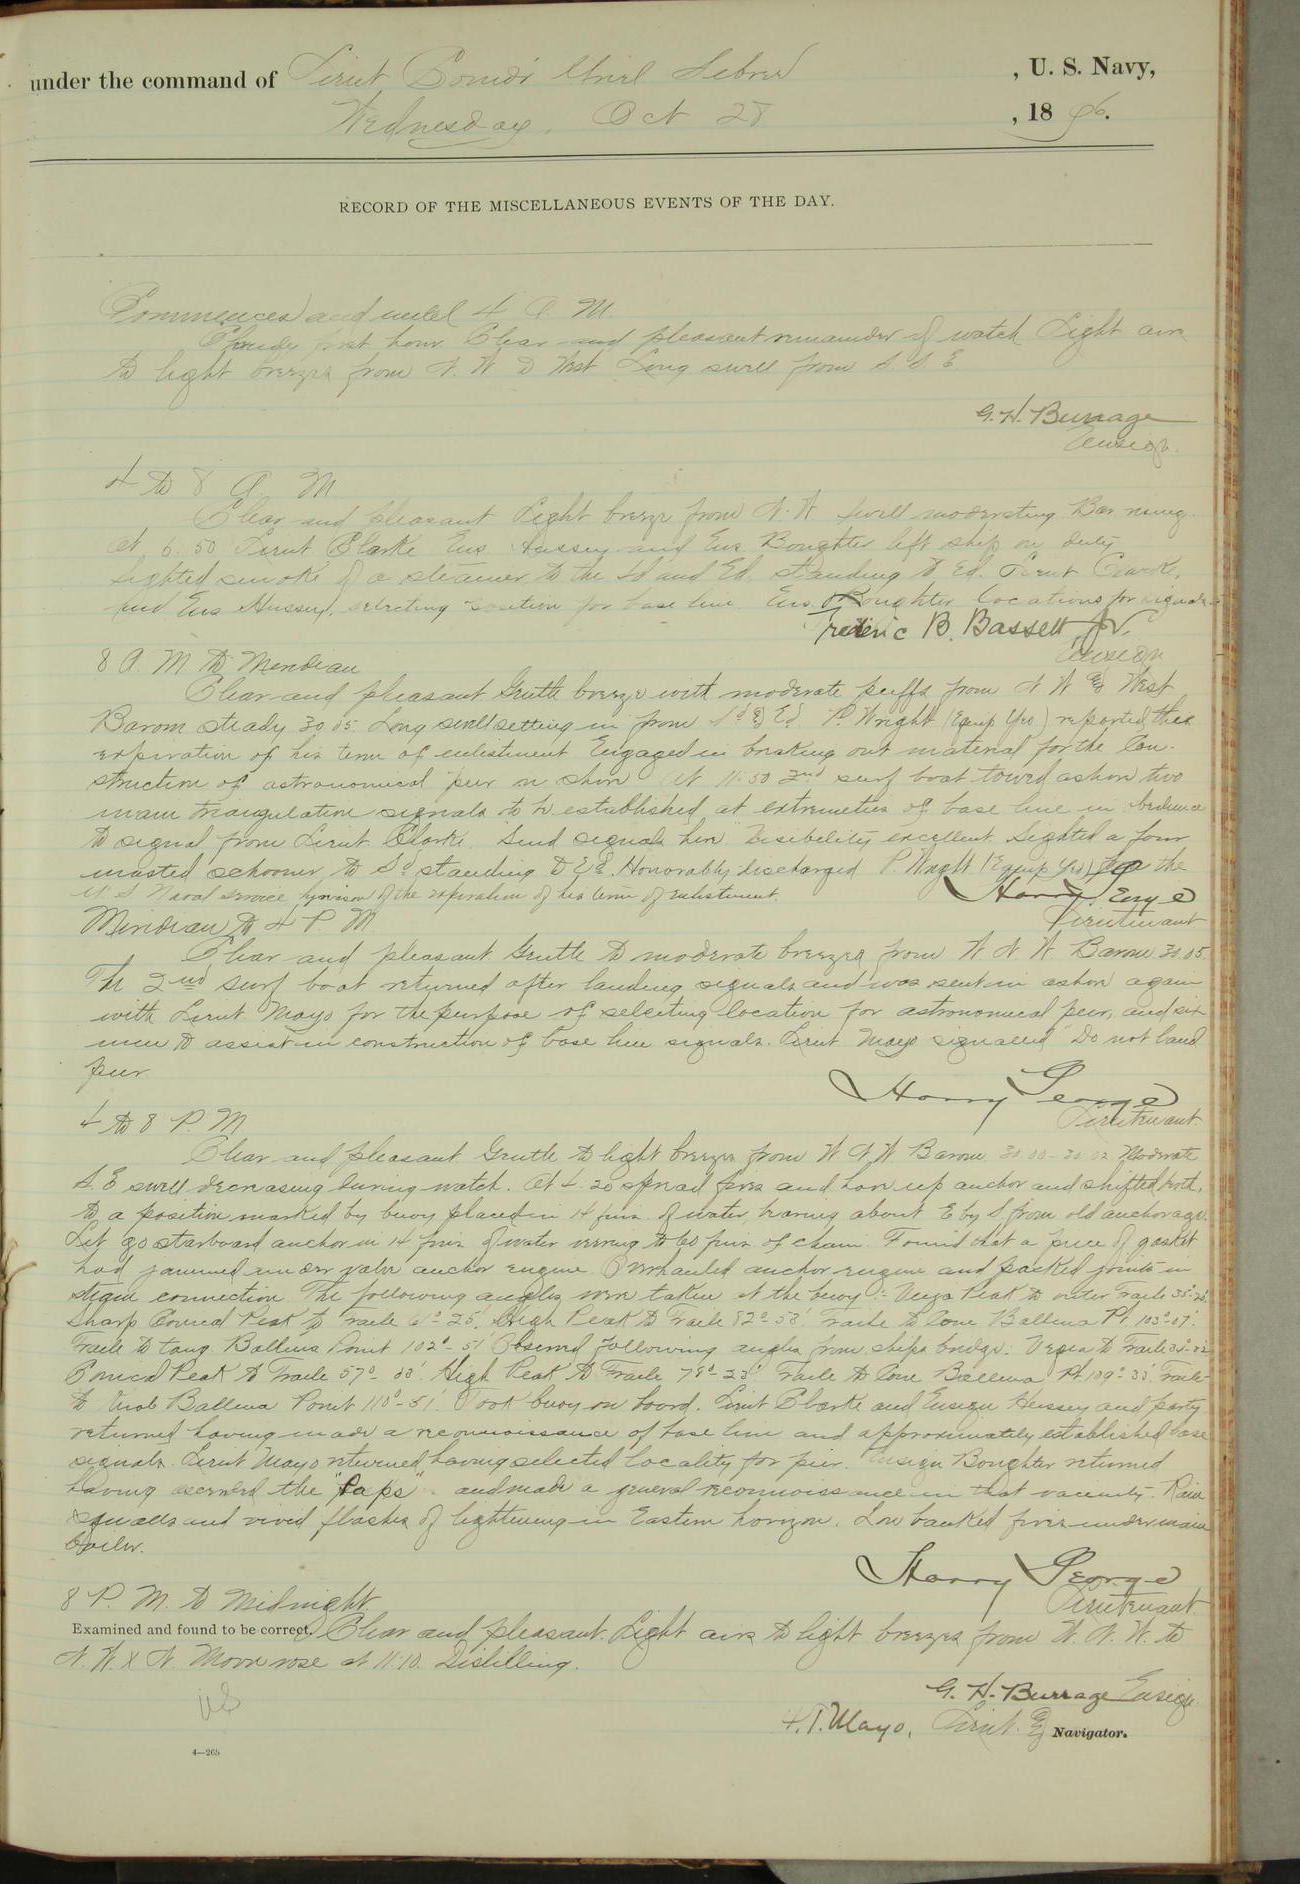 under the command of Lieut Comdr Uriel Sebree , U. S. Navy,
Wednesday, Oct 28 , 1896.
RECORD OF THE MISCELLANEOUS EVENTS OF THE DAY.
Commences and until 4 A. M.
Cloudy first hour Clear and pleasant remainder of watch Light airs
to light breezes from N. W to West Long swell from S. S. E
G. H. Burrage
Ensign.
4 to 8 A. M
Clear and pleasant Light breeze from N. W Swell moderating Bar rising.
At 6.50 Lieut Clarke Ens. Hussey and Ens Boughter left ship on duty
Sighted smoke of a steamer to the Sd and Ed. standing to Ed. Lieut Clark,
and Ens Hussey, selecting position for base line Ens. Boughter locations for signals.
Frederic B. Bassett, Jr.
Ensign
8 A. M. to Meridian
Clear and pleasant Gentle breeze with moderate puffs from N W & West
Barom steady 30.05. Long swell setting in from Sd & Ed. P. Wright (Equip Yeo) reported the
expiration of his term of enlistment Engaged in breaking out material for the Con-
struction of astronomical pier on shore At 11.50 2nd surf boat towed ashore two
main triangulation signals to be established at extremeties of base line in obedience
to signal from Lieut. Clarke. "Send signals here" Visibility excellent Sighted a four
masted schooner to Sd standing to Ed. Honorably discharged P. Wright (Equip Yeo) from the
U. S Naval service by reason of the expiration of his term of enlistment.
Harry George
Lieutenant
Meridian to 4 P. M
Clear and pleasant Gentle to moderate breezes from W N W Barom 30.05.
The 2nd surf boat returned after landing signals and was sent in ashore again
with Lieut Mayo for the purpose of selecting location for astronomical pier, and six
men to assist in construction of base line signals. Lieut Mayo signalled "Do not land
pier.
Harry George
Lieutenant.
4 to 8 P. M
Clear and pleasant Gentle to light breezes from W N W Barom 30.00-30.02 Moderate
S. E swell decreasing during watch. At 4.20 spread fires and hove up anchor and shifted berth,
to a position marked by buoy placed in 14 fms. of water, bearing about E by S from old anchorage.
Let go starboard anchor in 14 fms of water veering to 60 fms of chain. Found that a piece of gasket
had jammed under valve anchor engine Overhauled anchor engine and packed joints in
steam connection The following angles were taken at the buoy:- Vega Peak to outer Fraile
Sharp Coned Peak to Fraile 61°-25'. High Peak to Fraile 82°-58'. Fraile to Cone Ballena Pt. 103°-07'.
Fraile to tang. Ballena Point 102°-51' Observed following angles from ships bridge: Vega to Fraile
Coned Peak to Fraile 57°-33'. High Peak to Fraile 78°-23' Fraile to Cone Ballena Pt. 109°-33'. Fraile
to Ballena Point 110°-51'. Took buoy on board. Lieut Clarke and Ensign Hussey and party
returned having made a reconnoissance of base line and approximately established base
signals. Lieut Mayo returned having selected locality for pier. Ensign Boughter returned
having ascended the "Paps" and made a general reconnoissance in that vacinity. Rain
squalls and vivid flashes of lightening in Eastern horizon. Low banked fires under main
boiler.
Harry George
Lieutenant.
8 P. M. to Midnight
Examined and found to be correct. Clear and pleasant. Light airs to light breezes from W. N. W. to
N. W. x N. Moon rose at 11.10. Distilling.
US
G. H. Burrage Ensign.
H. T. Mayo, Lieut. & Navigator.
4—265